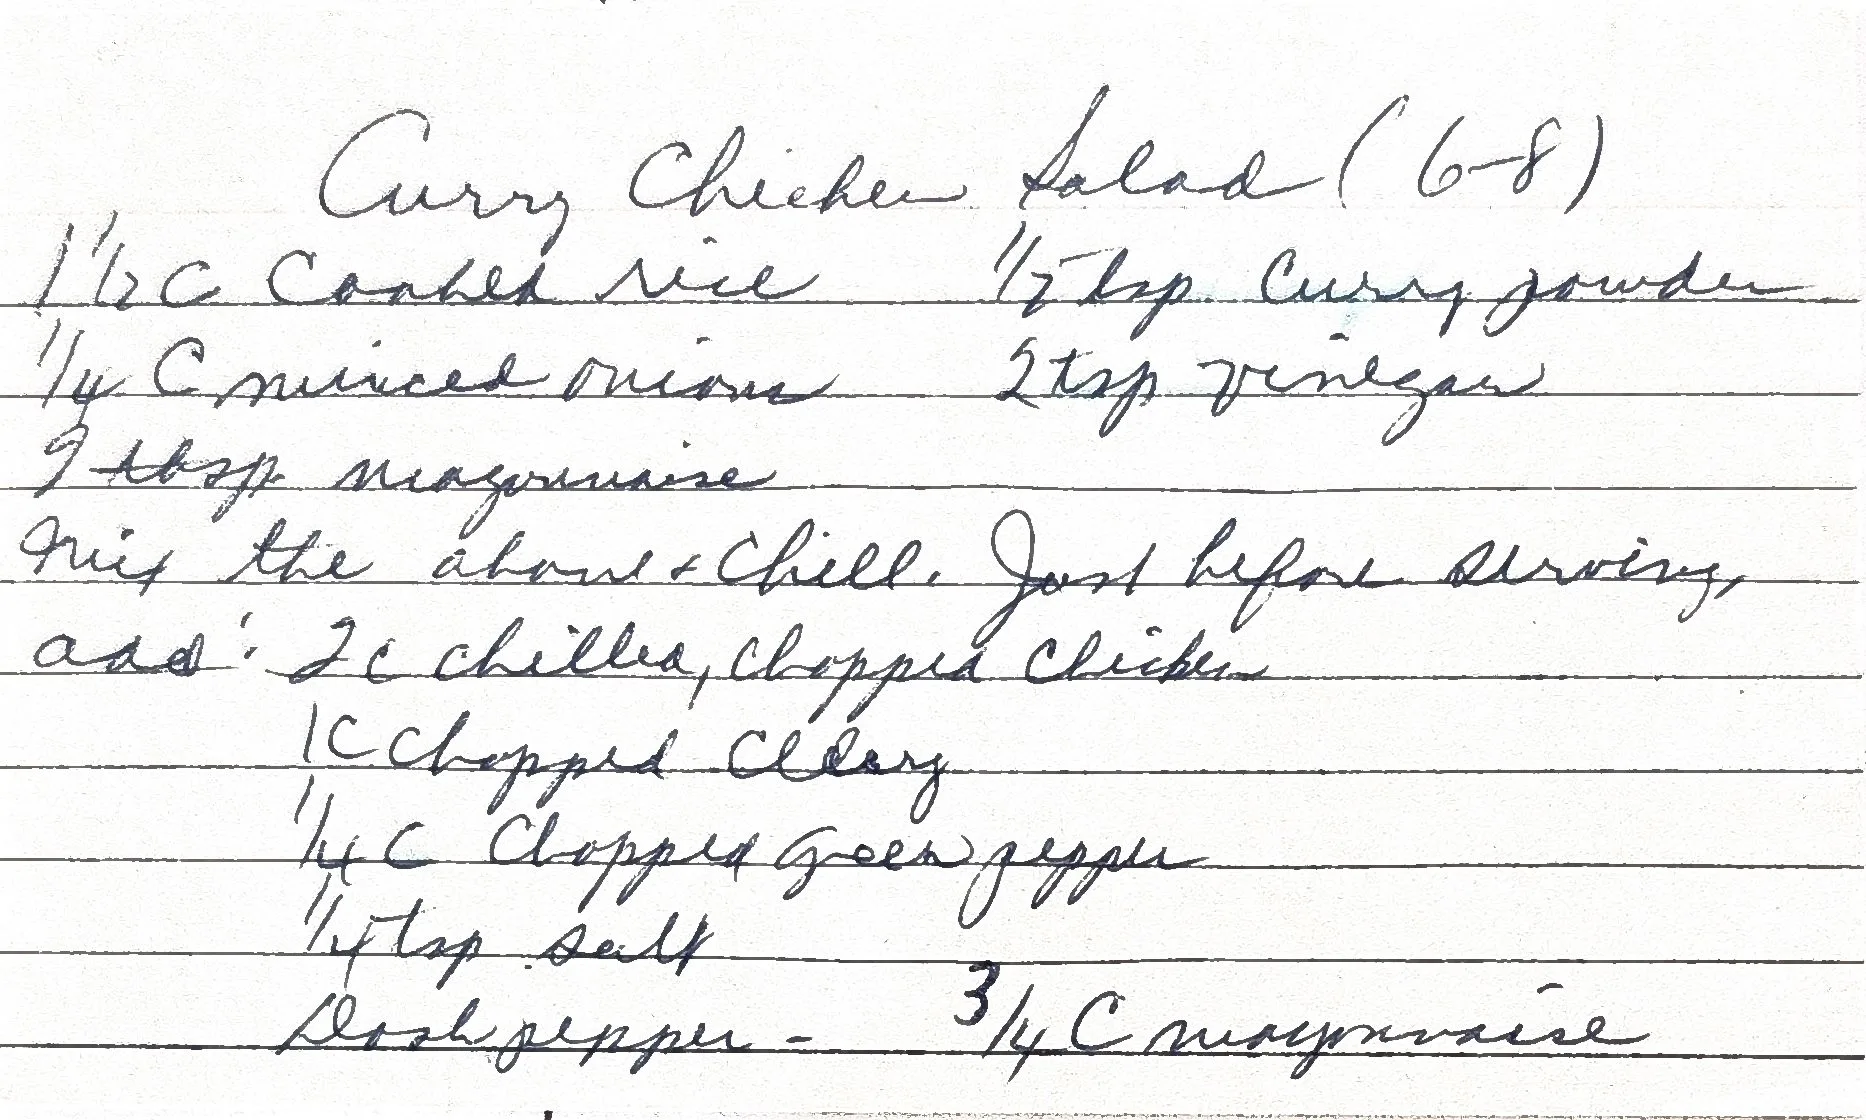 Curry Chicken Salad (6-8)
1 1/2 C Cooked rice 1/2 tsp. Curry powder
1/4 C minced onions 2 tsp vinegar
tbsp. mayonnaise
Mix the above & Chill. Just before serving,
add: 2 C chilled, chopped chicken
1 C chopped celery
1/4 C Chopped Green pepper
1/4 tsp salt
Dash pepper - 3/4 C mayonnaise